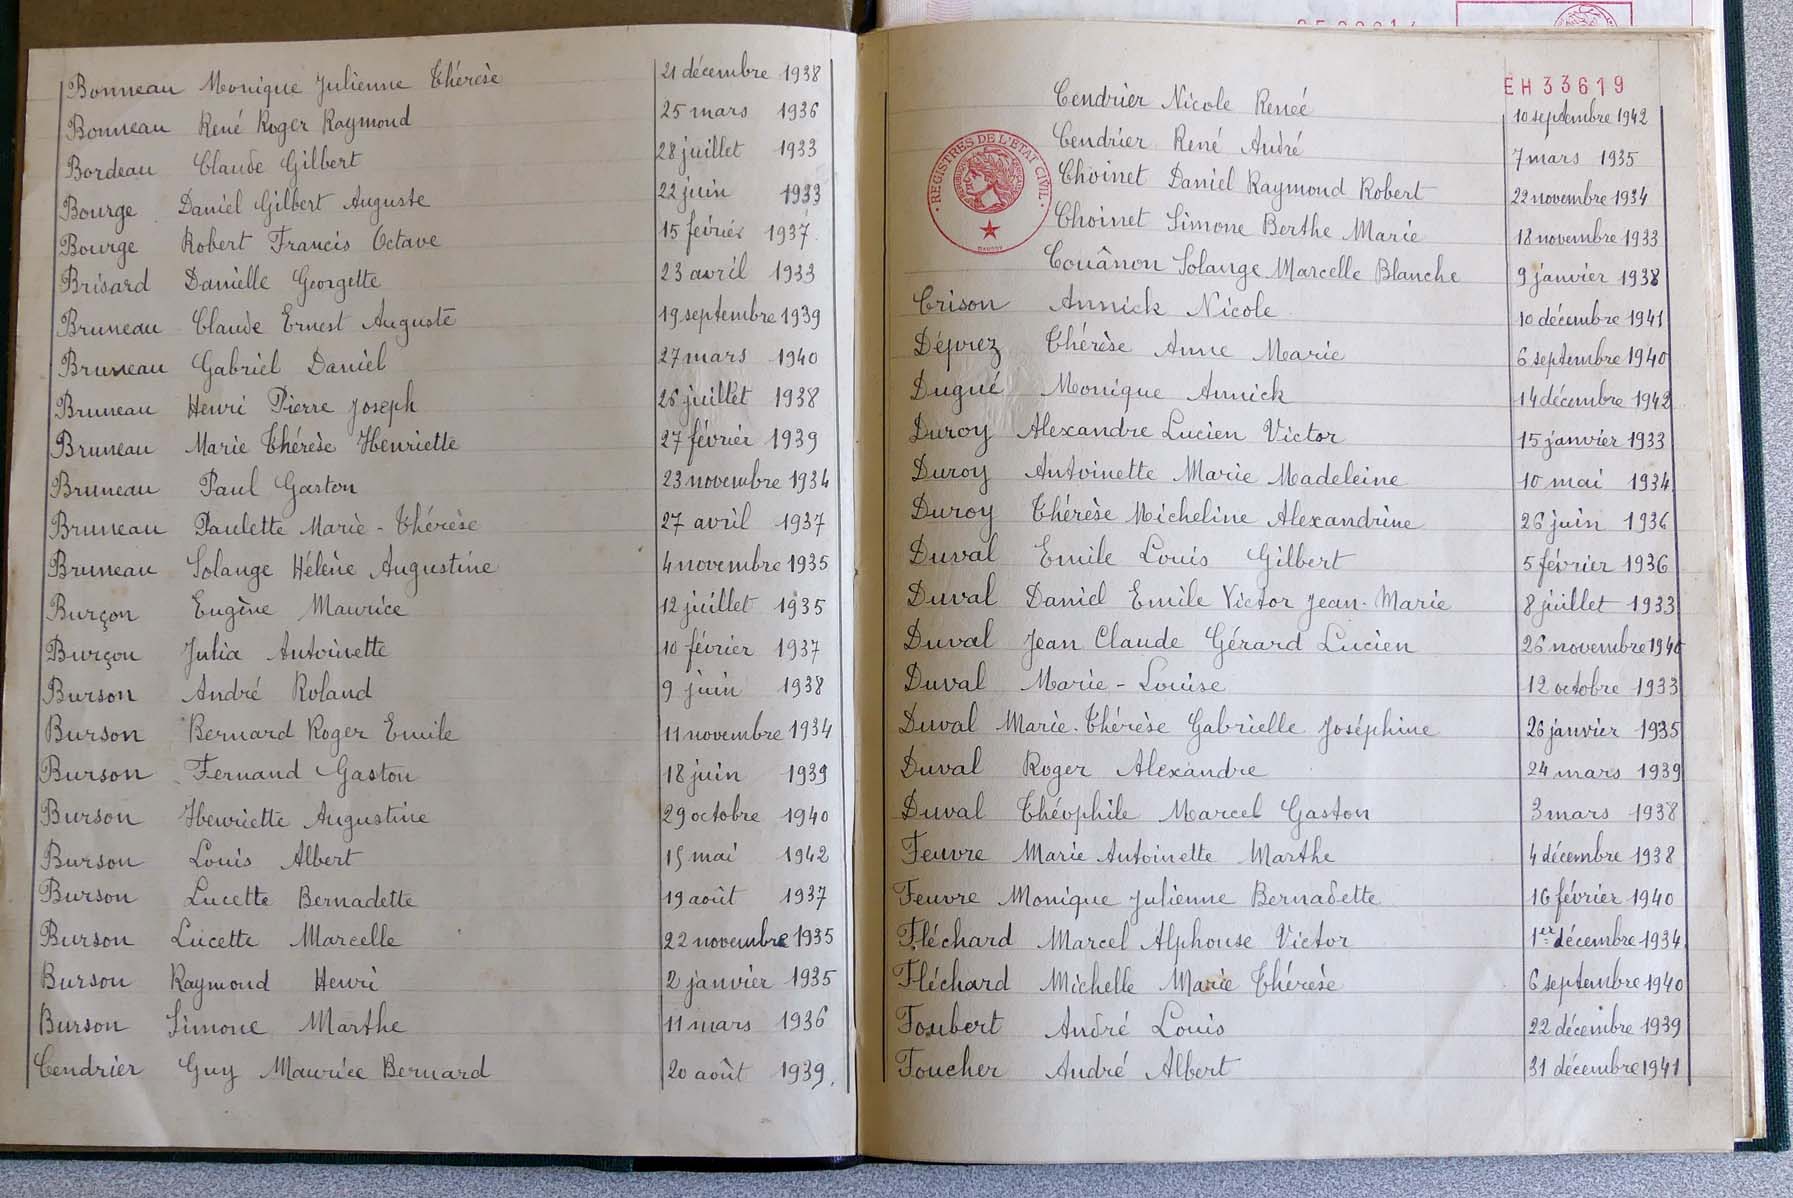 Bonneau Monique Julienne Thérèse 21 décembre 1938
Bonneau René Roger Raymond 25 mars 1936
Bordeau Claude Gilbert 28 juillet 1933
Bourge Daniel Gilbert Auguste 22 juin 1933
Bourge Robert Francis Octave 15 février 1937
Brisard Danielle Georgette 23 avril 1933
Bruneau Claude Ernest Auguste 19 septembre 1939
Bruneau Gabriel Daniel 27 mars 1940
Bruneau Henri Pierre Joseph 26 juillet 1938
Bruneau Marie Thérèse Henriette 27 février 1939
Bruneau Paul Gaston 23 novembre 1934
Bruneau Paulette Marie-Thérèse 27 avril 1937
Bruneau Solange Hélène Augustine 4 novembre 1935
Burçon Eugène Maurice 12 juillet 1935
Burçon Julia Antoinette 10 février 1937
Burson André Roland 9 juin 1938
Burson Bernard Roger Emile 11 novembre 1934
Burson Fernand Gaston 18 juin 1939
Burson Henriette Augustine 29 octobre 1940
Burson Louis Albert 15 mai 1942
Burson Lucette Bernadette 19 août 1937
Burson Lucette Marcelle 22 novembre 1935
Burson Raymond Henri 2 janvier 1935
Burson Simone Marthe 11 mars 1936
Cendrier Guy Maurice Bernard 20 août 1939.
EH 33619
REGISTRES DE L'ETAT CIVIL
Cendrier Nicole Reneé 10 septembre 1942
Cendrier René André 7 mars 1935
Choinet Daniel Raymond Robert 22 novembre 1934
Choinet Simone Berthe Marie 18 novembre 1933
Couânon Solange Marcelle Blanche 9 janvier 1938
Crison Annick Nicole 10 décembre 1941
Déprez Thérèse Anne Marie 6 septembre 1940
Dugué Monique Annick 14 décembre 1942
Duroy Alexandre Lucien Victor 15 janvier 1933
Duroy Antoinette Marie Madeleine 10 mai 1934
Duroy Thérèse Micheline Alexandrine 26 juin 1936
Duval Emile Louis Gilbert 5 février 1936
Duval Daniel Emile Victor Jean-Marie 8 juillet 1933
Duval Jean Claude Gérard Lucien 26 novembre 1940
Duval Marie-Louise 12 octobre 1933
Duval Marie-Thérèse Gabrielle Joséphine 26 janvier 1935
Duval Roger Alexandre 24 mars 1939
Duval Théophile Marcel Gaston 3 mars 1938
Feuvre Marie Antoinette Marthe 4 décembre 1938
Feuvre Monique Julienne Bernadette 16 février 1940
Fléchard Marcel Alphonse Victor 1er décembre 1934
Fléchard Michelle Marie Thérèse 6 septembre 1940
Foubert André Louis 22 décembre 1939
Foucher André Albert 31 décembre 1941